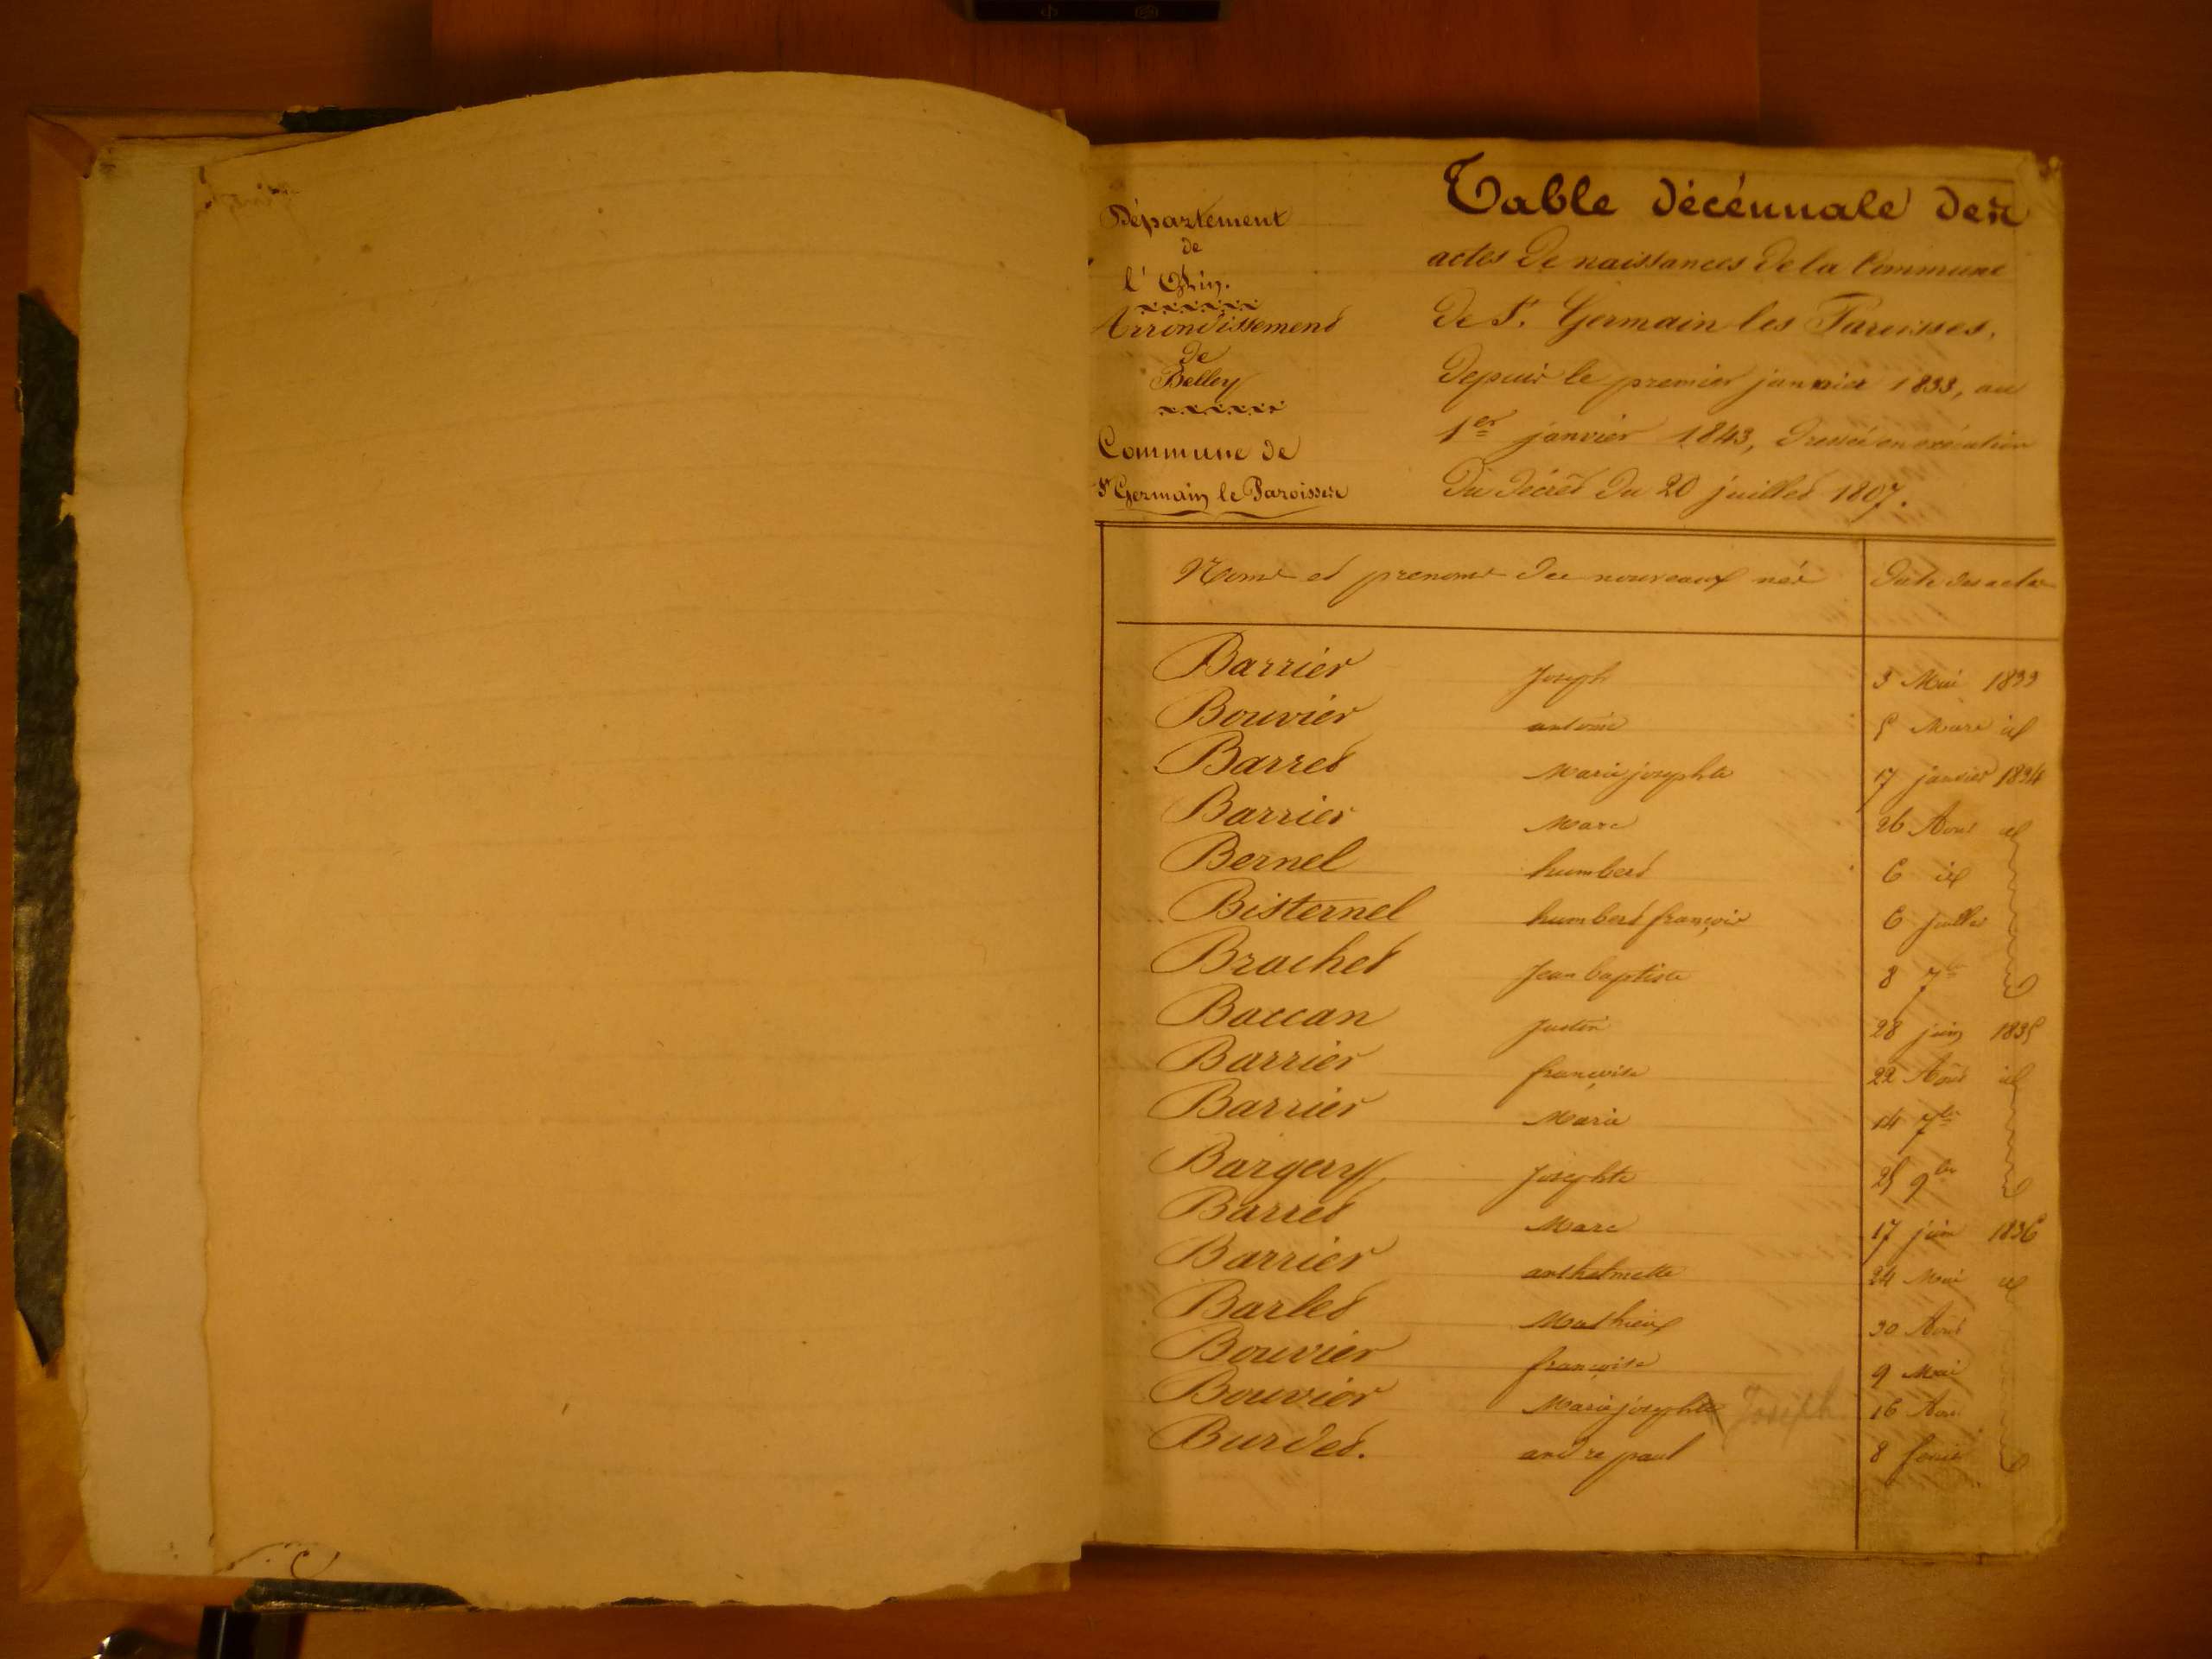 Département
de
l'Ain.
Arrondissement
de
Belley
Commune de
St Germain le Paroisses
Table décénnale des
actes de naissances de la Commune
de St. Germain les Paroisses,
depuis le premier janvier 1833, au
1er janvier 1843, dressée en exécution
du décret du 20 juillet 1807.
Noms et prenoms des nouveaux nés Date des actes
Barrier Joseph 3 Mai 1833
Bouvier antoine 5 Mars id
Barret Marie josephte 17 janvier 1834
Barrier Marc 26 Aout id
Bernel humbert 6 id
Bisternel humbert françois 6 juillet
Brochet Jean baptiste 8 7bre
Baccan Justin 28 juin 1835
Barrier françoise 22 Aout id
Barrier Marie 14 7bre
Josephte 25 9bre
Barret Marc 17 juin 1836
Barrier anthelmette 24 Mai id
Barlet Mathieu 30 Aout
Bouvier françoise 9 Mai
Bouvier Marie josephte Joseph 16
Burdet. andre paul 8